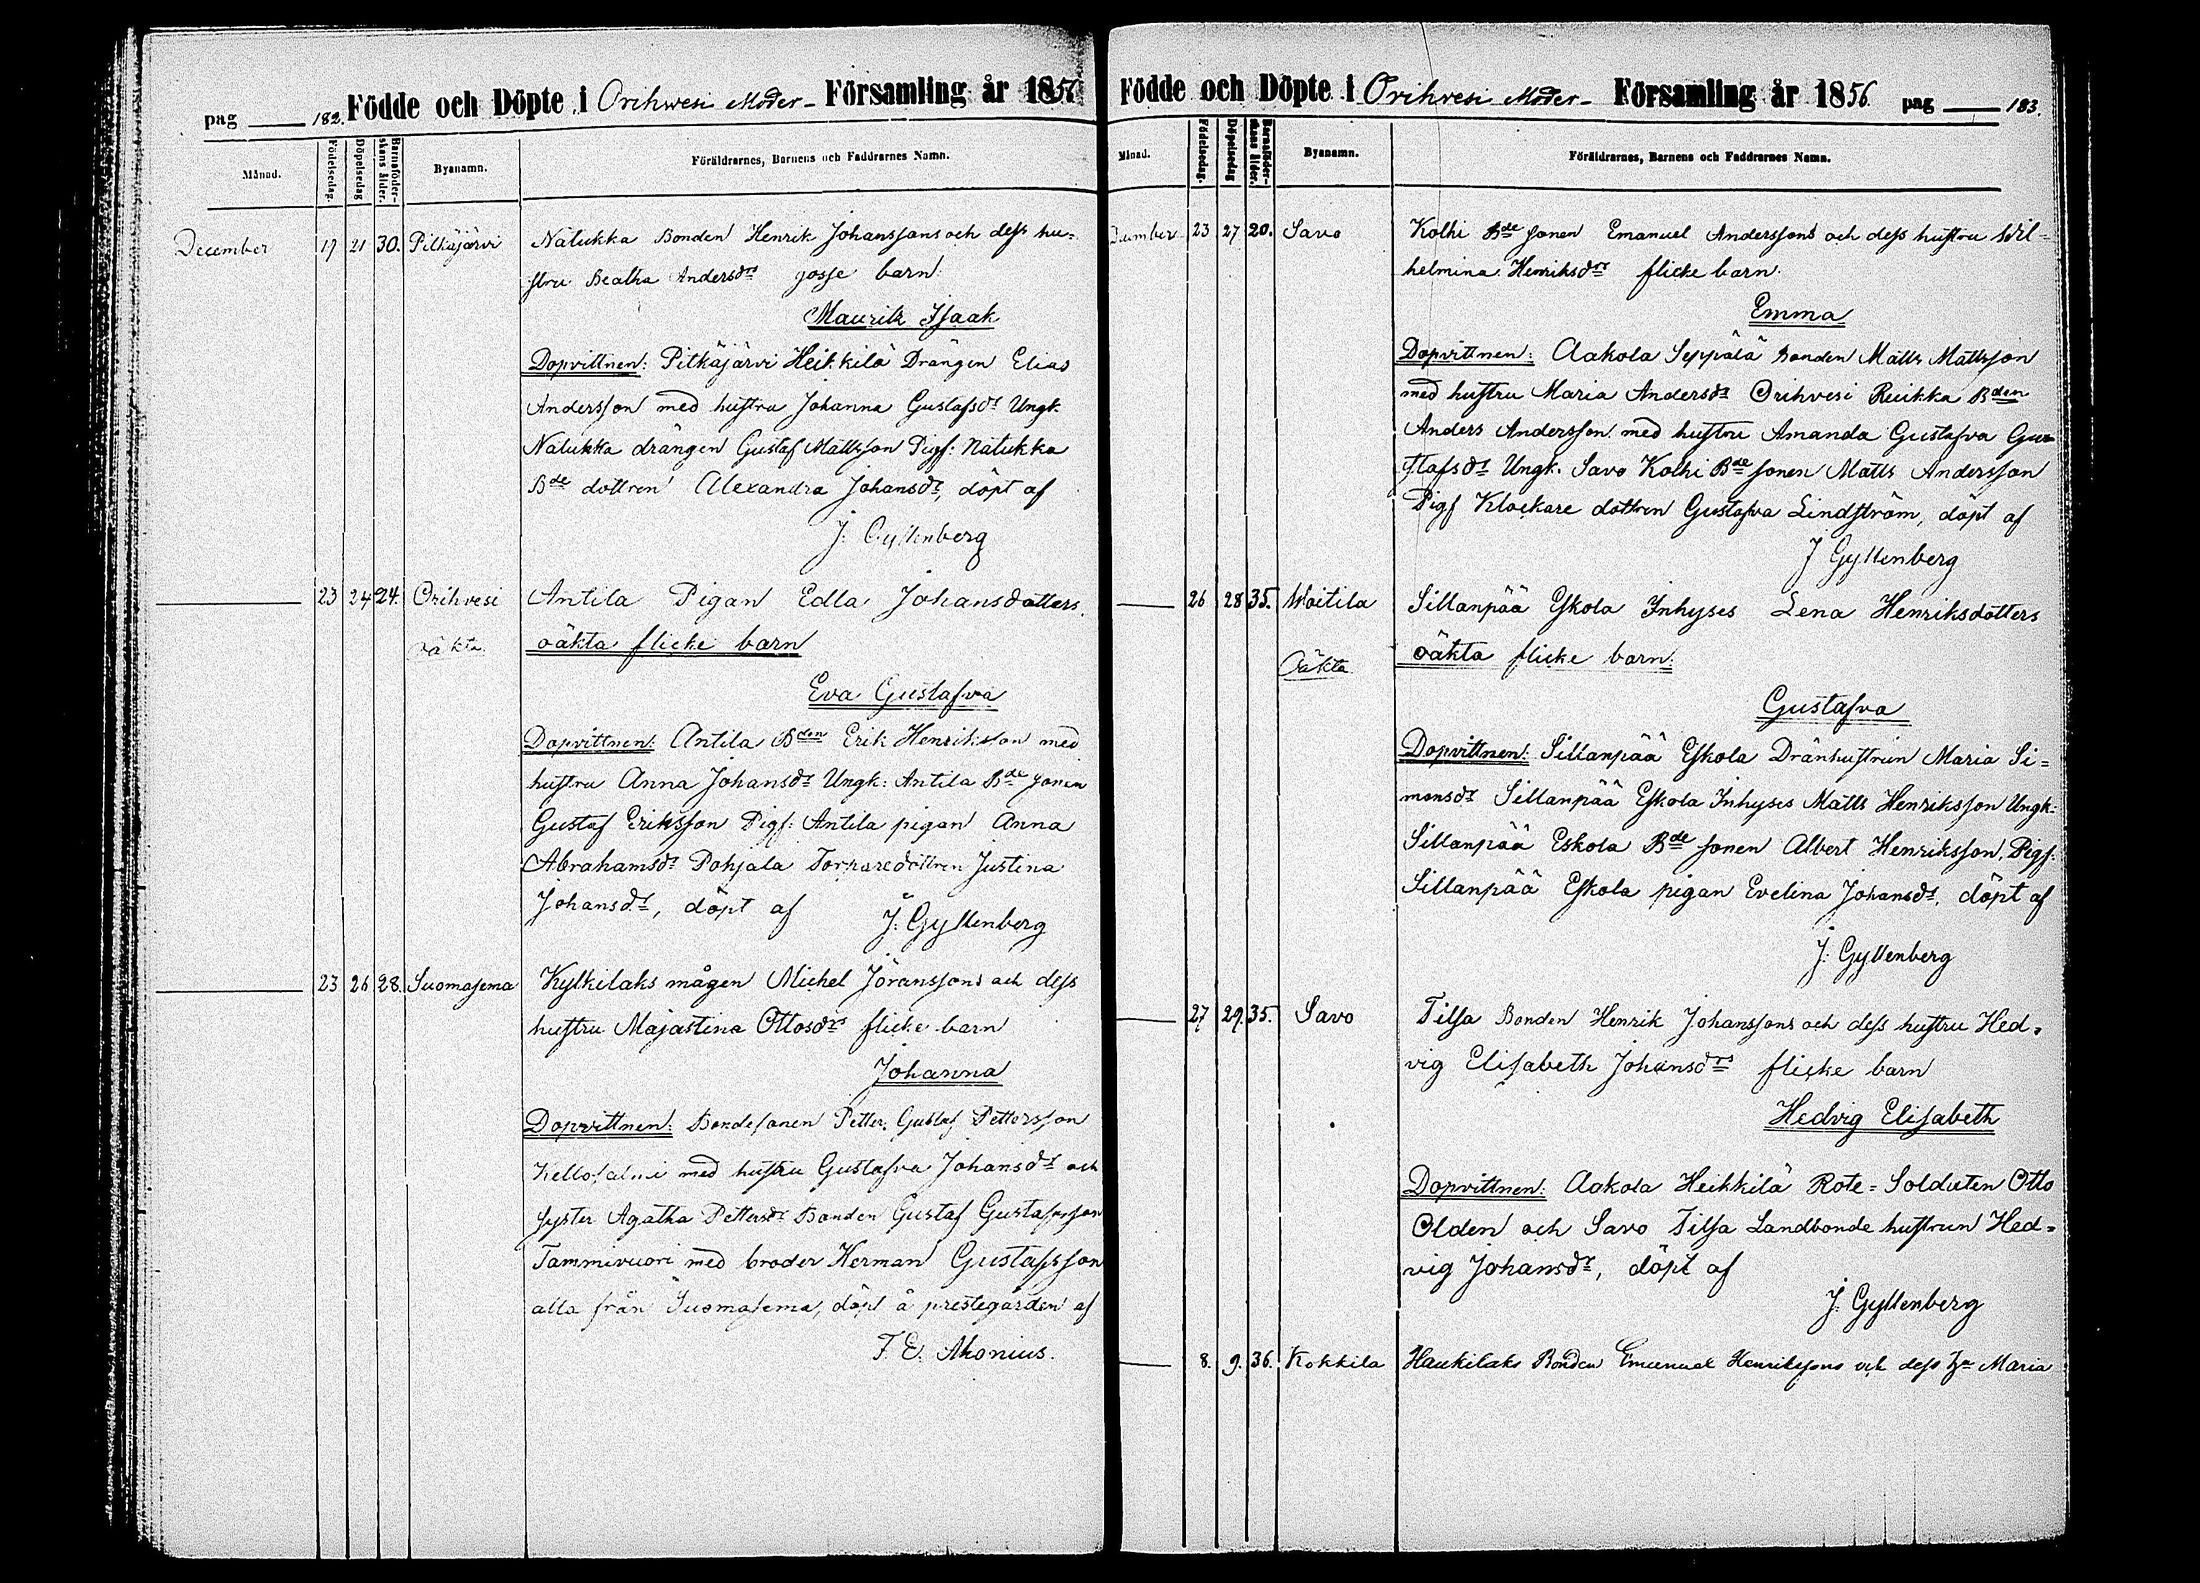 pag 182. Födde och Döpte i Orihwesi Moder- Församling år 1856
Månad. Födelsedag. Döpelsedag Barnaföderskans ålder. Byanamn. Föräldrarnes, Barnens och Faddrarnes Namn.
December 19 21 30. Pitkäjärvi Nalukka Bonden Henrik Johanssons och dess hu-
stru Beatha Andersdrs gosse barn.
Mauritz Isaak
Dopvittnen: Pitkäjärvi Heikkilä Drängen Elias
Andersson med hustru Johanna Gustafsdr Ungk.
Nalukka drängen Gustaf Mattsson Pigf: Natukka
Bde dottren Alexandra Johansdr, döpt af
J. Gyllenberg
23 24 24. Orihvesi Antila Pigan Edla Johansdotters
oäkta oäkta flicke barn
Eva Gustafva
Dopvittnen: Antila Bden Erik Henriksson med
hustru Anna Johansdr Ungk: Antila Bde sonen
Gustaf Eriksson Pigf: Antila pigan Anna
Abrahamsdr Pohjala Torparedottren Justina
Johansdr, döpt af J: Gyllenberg
23 26 28. Suomasema Kylkilaks mågen Michel Jöranssons och dess
hustru Majastina Ottosdrs flicke barn
Johanna
Dopvittnen: Bondesonen Petter Gustaf Pettersson
Kellosalmi med hustru Gustafva Johansdr och
syster Agatha Pettersdr Bonden Gustaf Gustafsson
Tammivuori med broder Herman Gustafsson
alla från Suomasema, döpt å prestegården af
F. E. Ahonius.
Födde och Döpte i Orihvesi Moder- Församling år 1856 pag 183.
Månad. Födelsedag. Döpelsedag Barnaföderskans ålder. Byanamn. Föräldrarnes, Barnens och Faddrarnes Namn.
December 23 27 20. Savo Kolhi Bde sonen Emanuel Anderssons och dess hustru Wil=
helmina Henriksdrs flicke barn.
Emma
Dopvittnen: Aakola Seppälä bonden Matts Mattsson
med hustru Maria Andersdr Orihvesi Ruikka Bden
Anders Andersson med hustru Amanda Gustafva Gus
tafsdr Ungk. Savo Kolhi Bde sonen Matts Andersson
Pigf Klockare dottren Gustafva Lindström, döpt af
J Gyllenberg
26 28 35. Woitila Sillanpää Eskola Inhyses Lena Henriksdotters
Oäkta oäkta flicke barn.
Gustafva
Dopvittnen: Sillanpää Eskola Dränhustrun Maria Si=
monsdr Sillanpää Eskola Inhyses Matts Henriksson Ungk:
Sillanpää Eskola Bde sonen Albert Henriksson, Pigf:
Sillanpää Eskola pigan Evelina Johansdr, döpt af
J: Gyllenberg
27 29. 35. Savo Tilsa Bonden Henrik Johanssons och dess hustru Hed=
vig Elisabeth Johansdrs flicke barn
Hedvig Elisabeth
Dopvittnen: Aakola Heikkilä Rote=Soldaten Otto
Olden och Savo Tilsa Landbonde hustrun Hed=
vig Johansdr, döpt af
J: Gyllenberg
8. 9. 36. Kokkila Haukilaks Bonden Emanuel Henrikssons och dess hu Maria